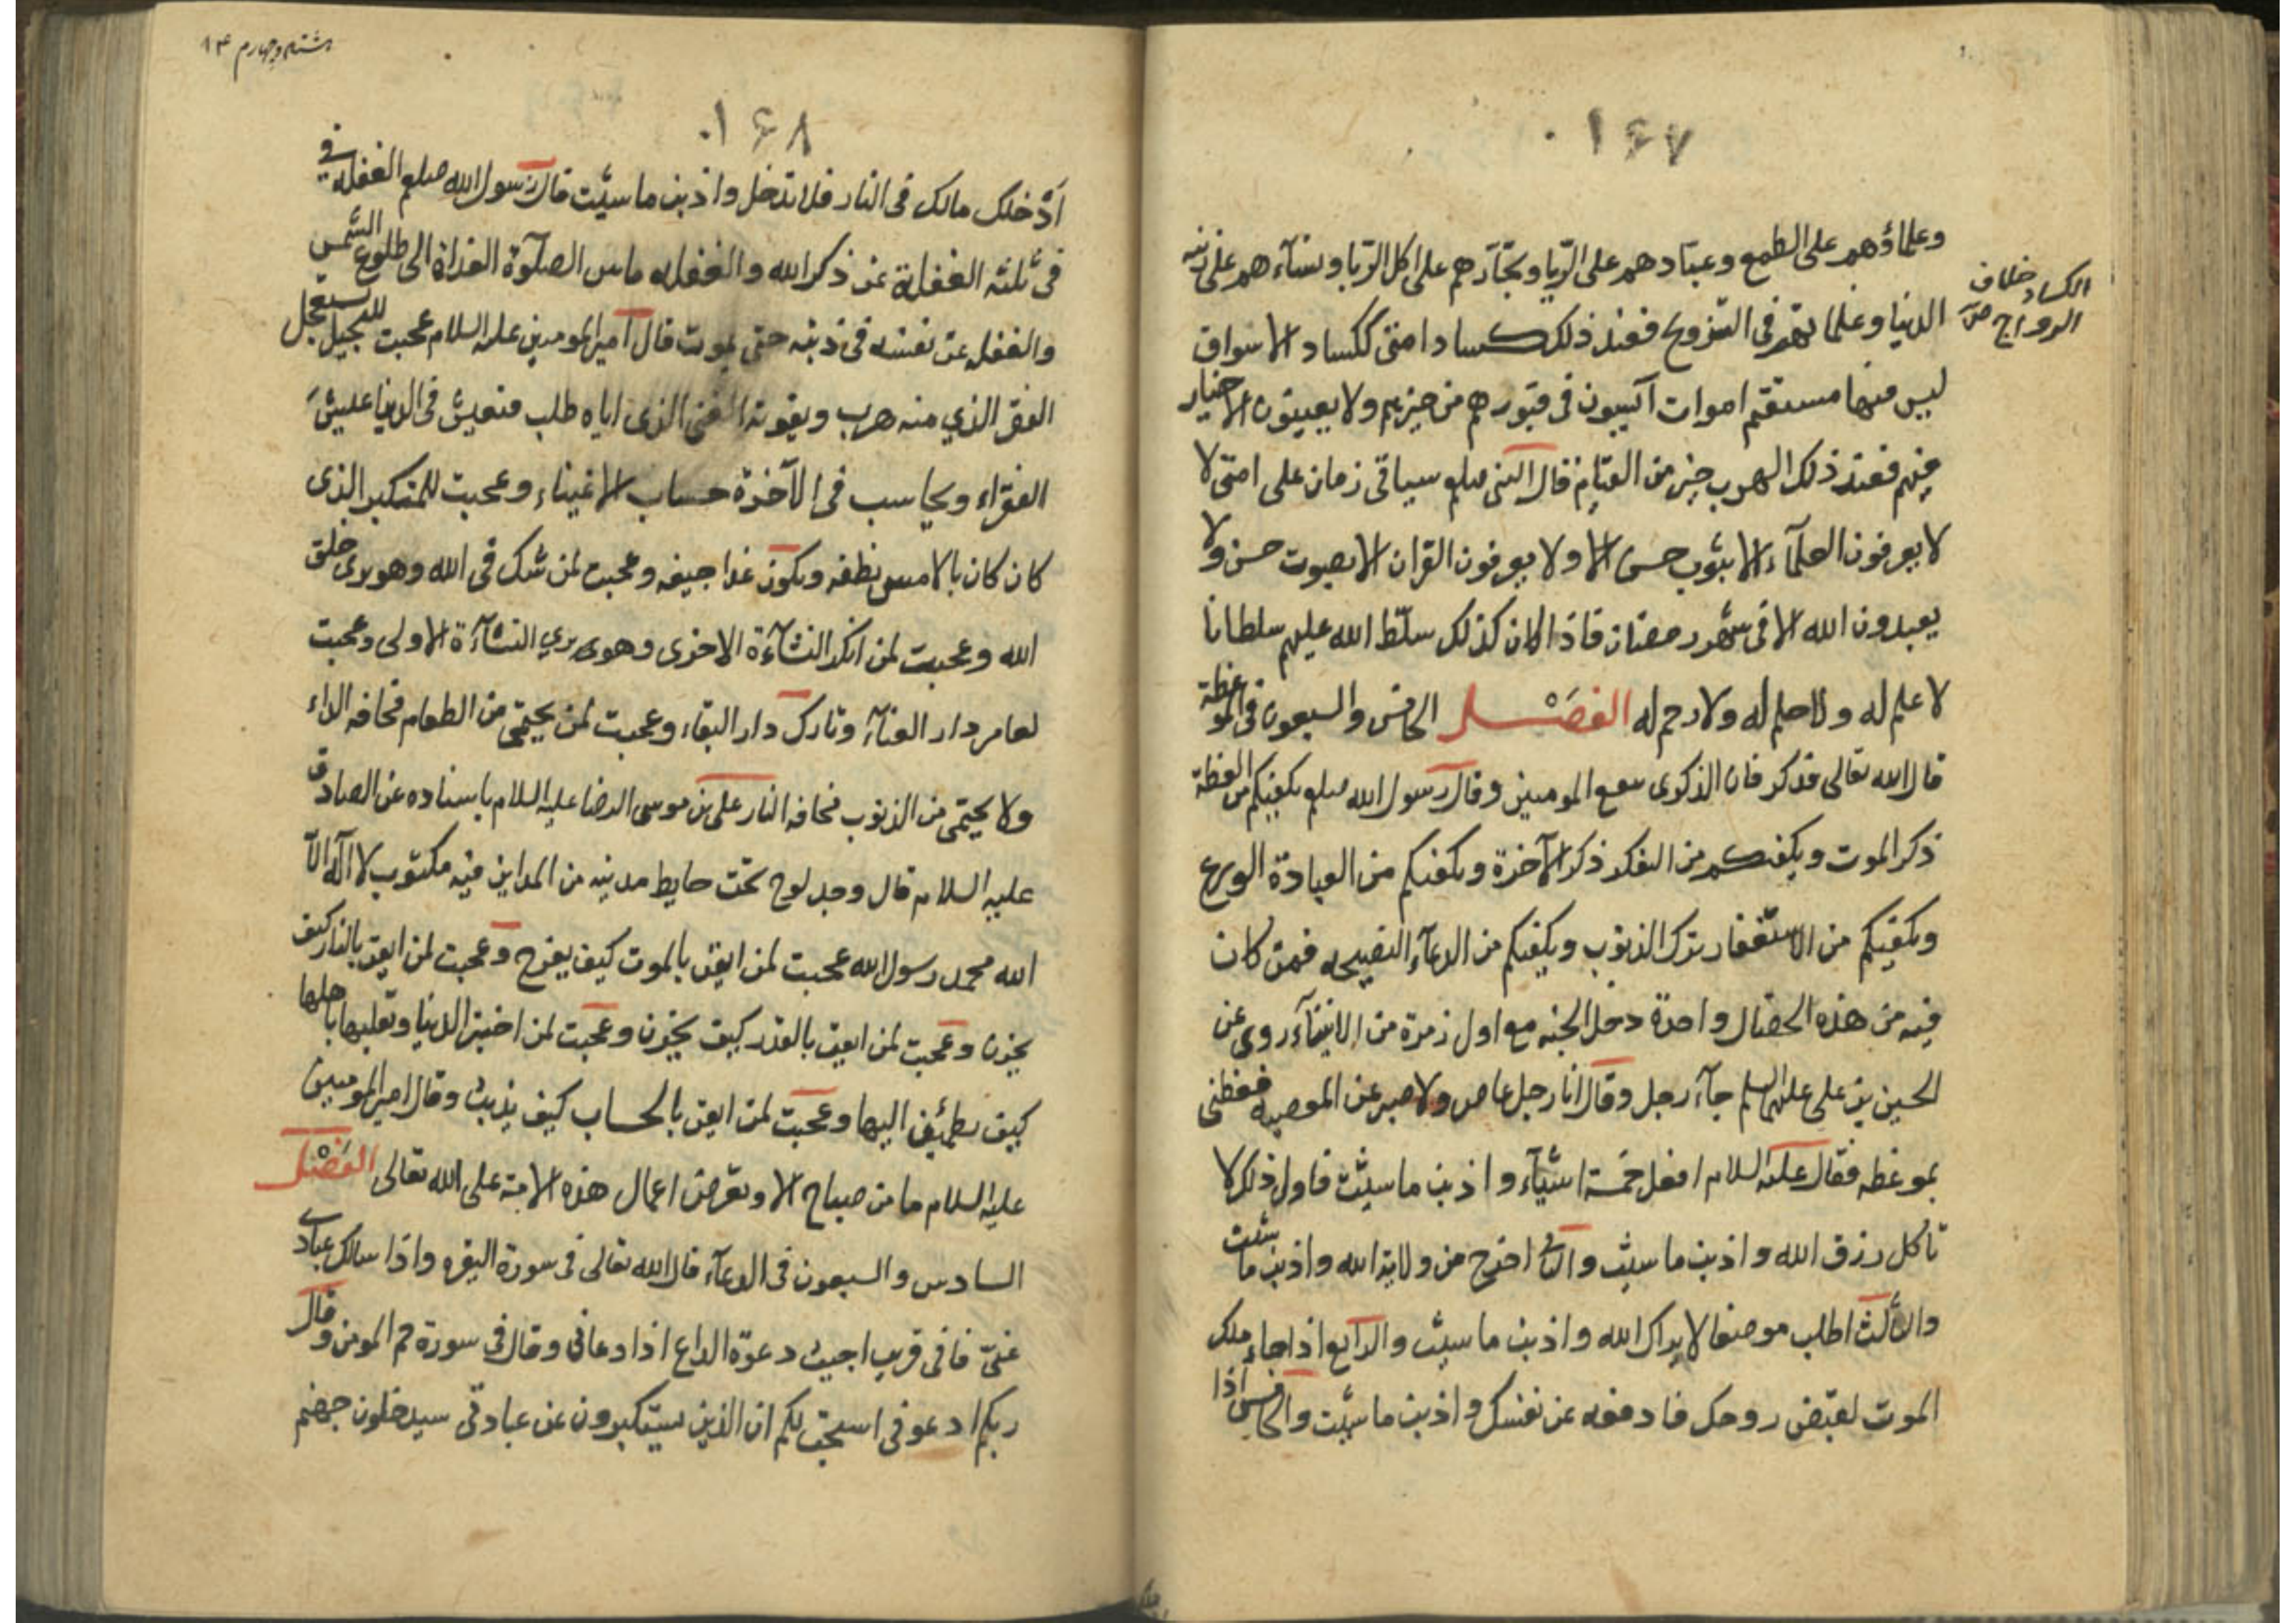 ۱۶۷
وعلماؤهم على الطمع وعبادهم على الريا وتجارهم على اكل الربا ونساءهم على زينة
الدنيا وغلمانهم فى التزويج فعند ذلك كساد امتى ككساد الاسواق
الكساد خلاف
الرواج ص
ليس فيها مستقيم اموات آيسون فى قبورهم من خيرهم ولا يعيشون الاخيار
فيهم فعند ذلك الهرب خير من القيام قال النبى صلعم سياتى زمان على امتى لا
لا يعرفون العلمآء الا بثوب حسن الا ولا يعرفون القران الا بصوت حسن ولا
يعبدون الله الا فى شهر رمضان فاذا كان كذلك سلّط الله عليهم سلطانا
لا علم له ولا حلم له ولا رحم له الفصل الخامس والسبعون فى الموعظة
قال الله تعالى فذكر فان الذكرى تنفع المومنين وقال رسول الله صلعم يكفيكم من العظة
ذكر الموت ويكفيكم من التفكر ذكر الآخرة ويكفيكم من العبادة الورع
ويكفيكم من الاستغفار ترك الذنوب ويكفيكم من الدعآء النصيحه فمن كان
فيه من هذه الخصال واحدة دخل الجنه مع اول زمرة من الانبيآء روى عن
الحسين بن علي عليهم السلم جآء رجل وقال انا رجل عاص ولا صبر عن المعصيه فعظنى
بموعظه فقال عليه السلام افعل خمسة اشيآء واذنب ما شيئت فاول ذلك لا
تاكل رزق الله واذنب ما شيئت والثانى اخرج من ولاية الله واذنب ما شئت
والثالث اطلب موضعا لا يراك الله واذنب ما شيئت والرابع اذا جاء ملك
الموت لقبض روحك فادفعه عن نفسك واذنب ما شيئت والخامس اذا
هشتاد وچهارم ۸۴
۱۶۸
ادخلك مالك فى النار فلا تدخل واذنب ما شيئت قال رسول الله صلعم الغفله فى
فى ثلثه الغفلة عن ذكر الله والغفله ما بين الصلوة الغداة الى طلوع الشمس
والغفله عن نفسه فى ذنبه حتى يموت قال امير المومنين عليه السلام عجبت للبخيل يستعجل
الفقر الذي منه هرب ويفوته الغنى الذى اياه طلب فيعيش فى الدنيا عيش
الفقراء ويحاسب فى الآخرة حساب الاغنياء وعجبت للمتكبر الذى
كان كان بالامس نطفه ويكون غدا جيفه وعجبت لمن شك فى الله وهو يرى خلق
الله وعجبت لمن انكر النشآءة الاخرى وهو يري النشآءة الاولى وعجبت
لعامر دار الفنآء وتارك دار البقاء وعجبت لمن يحتمى من الطعام مخافه الداء
ولا يحتمى من الذنوب مخافه النار على بن موسى الرضا عليه السلام باسناده عن الصادق
عليه السلام قال وجد لوح تحت حايط مدينه من المداين فيه مكتوب لا اله الا
الله محمد رسول الله عجبت لمن ايقن بالموت كيف يفرح وعجبت لمن ايقن بالنار كيف
يحزن وعجبت لمن ايقن بالقدر كيف يحزن وعجبت لمن اختبر الدنيا وتقلبها باهلها
كيف يطمئن اليها وعجبت لمن ايقن بالحساب كيف يذنب وقال امير المومنين
عليه السلام ما من صباح الا وتعرض اعمال هذه الامة على الله تعالى الفصل
السادس والسبعون فى الدعآء قال الله تعالى فى سورة البقره واذا سالك عبادى
عنى فانى قريب اجيب دعوة الداع اذا دعانى وقال فى سورة حم المومن وقال
ربكم ادعونى استجب لكم ان الذين يستكبرون عن عبادتى سيدخلون جهنم